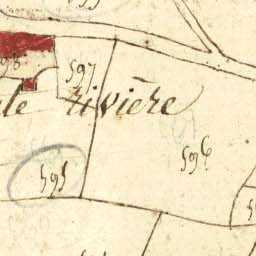 597
rivière
596
595